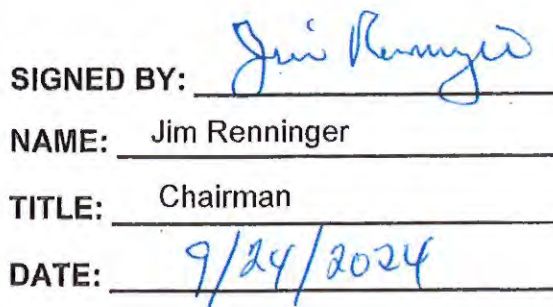 SIGNED BY: Jim Renninger
NAME: Jim Renninger
TITLE: Chairman
DATE: 9/24/2024